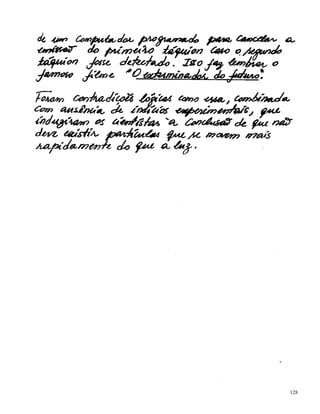 de um computador programado para cancelar a
emissão do primeiro táquion caso o segundo
táquion fosse detectado. Isso faz lembrar o
famoso filme "O exterminador do futuro".
Foram contradições lógicas como essa, combinada
com ausência de indícios experimentais, que
induziram os cientistas a conclusão de que não
deve existir partículas que se movem mais
rapidamente do que a luz.
128